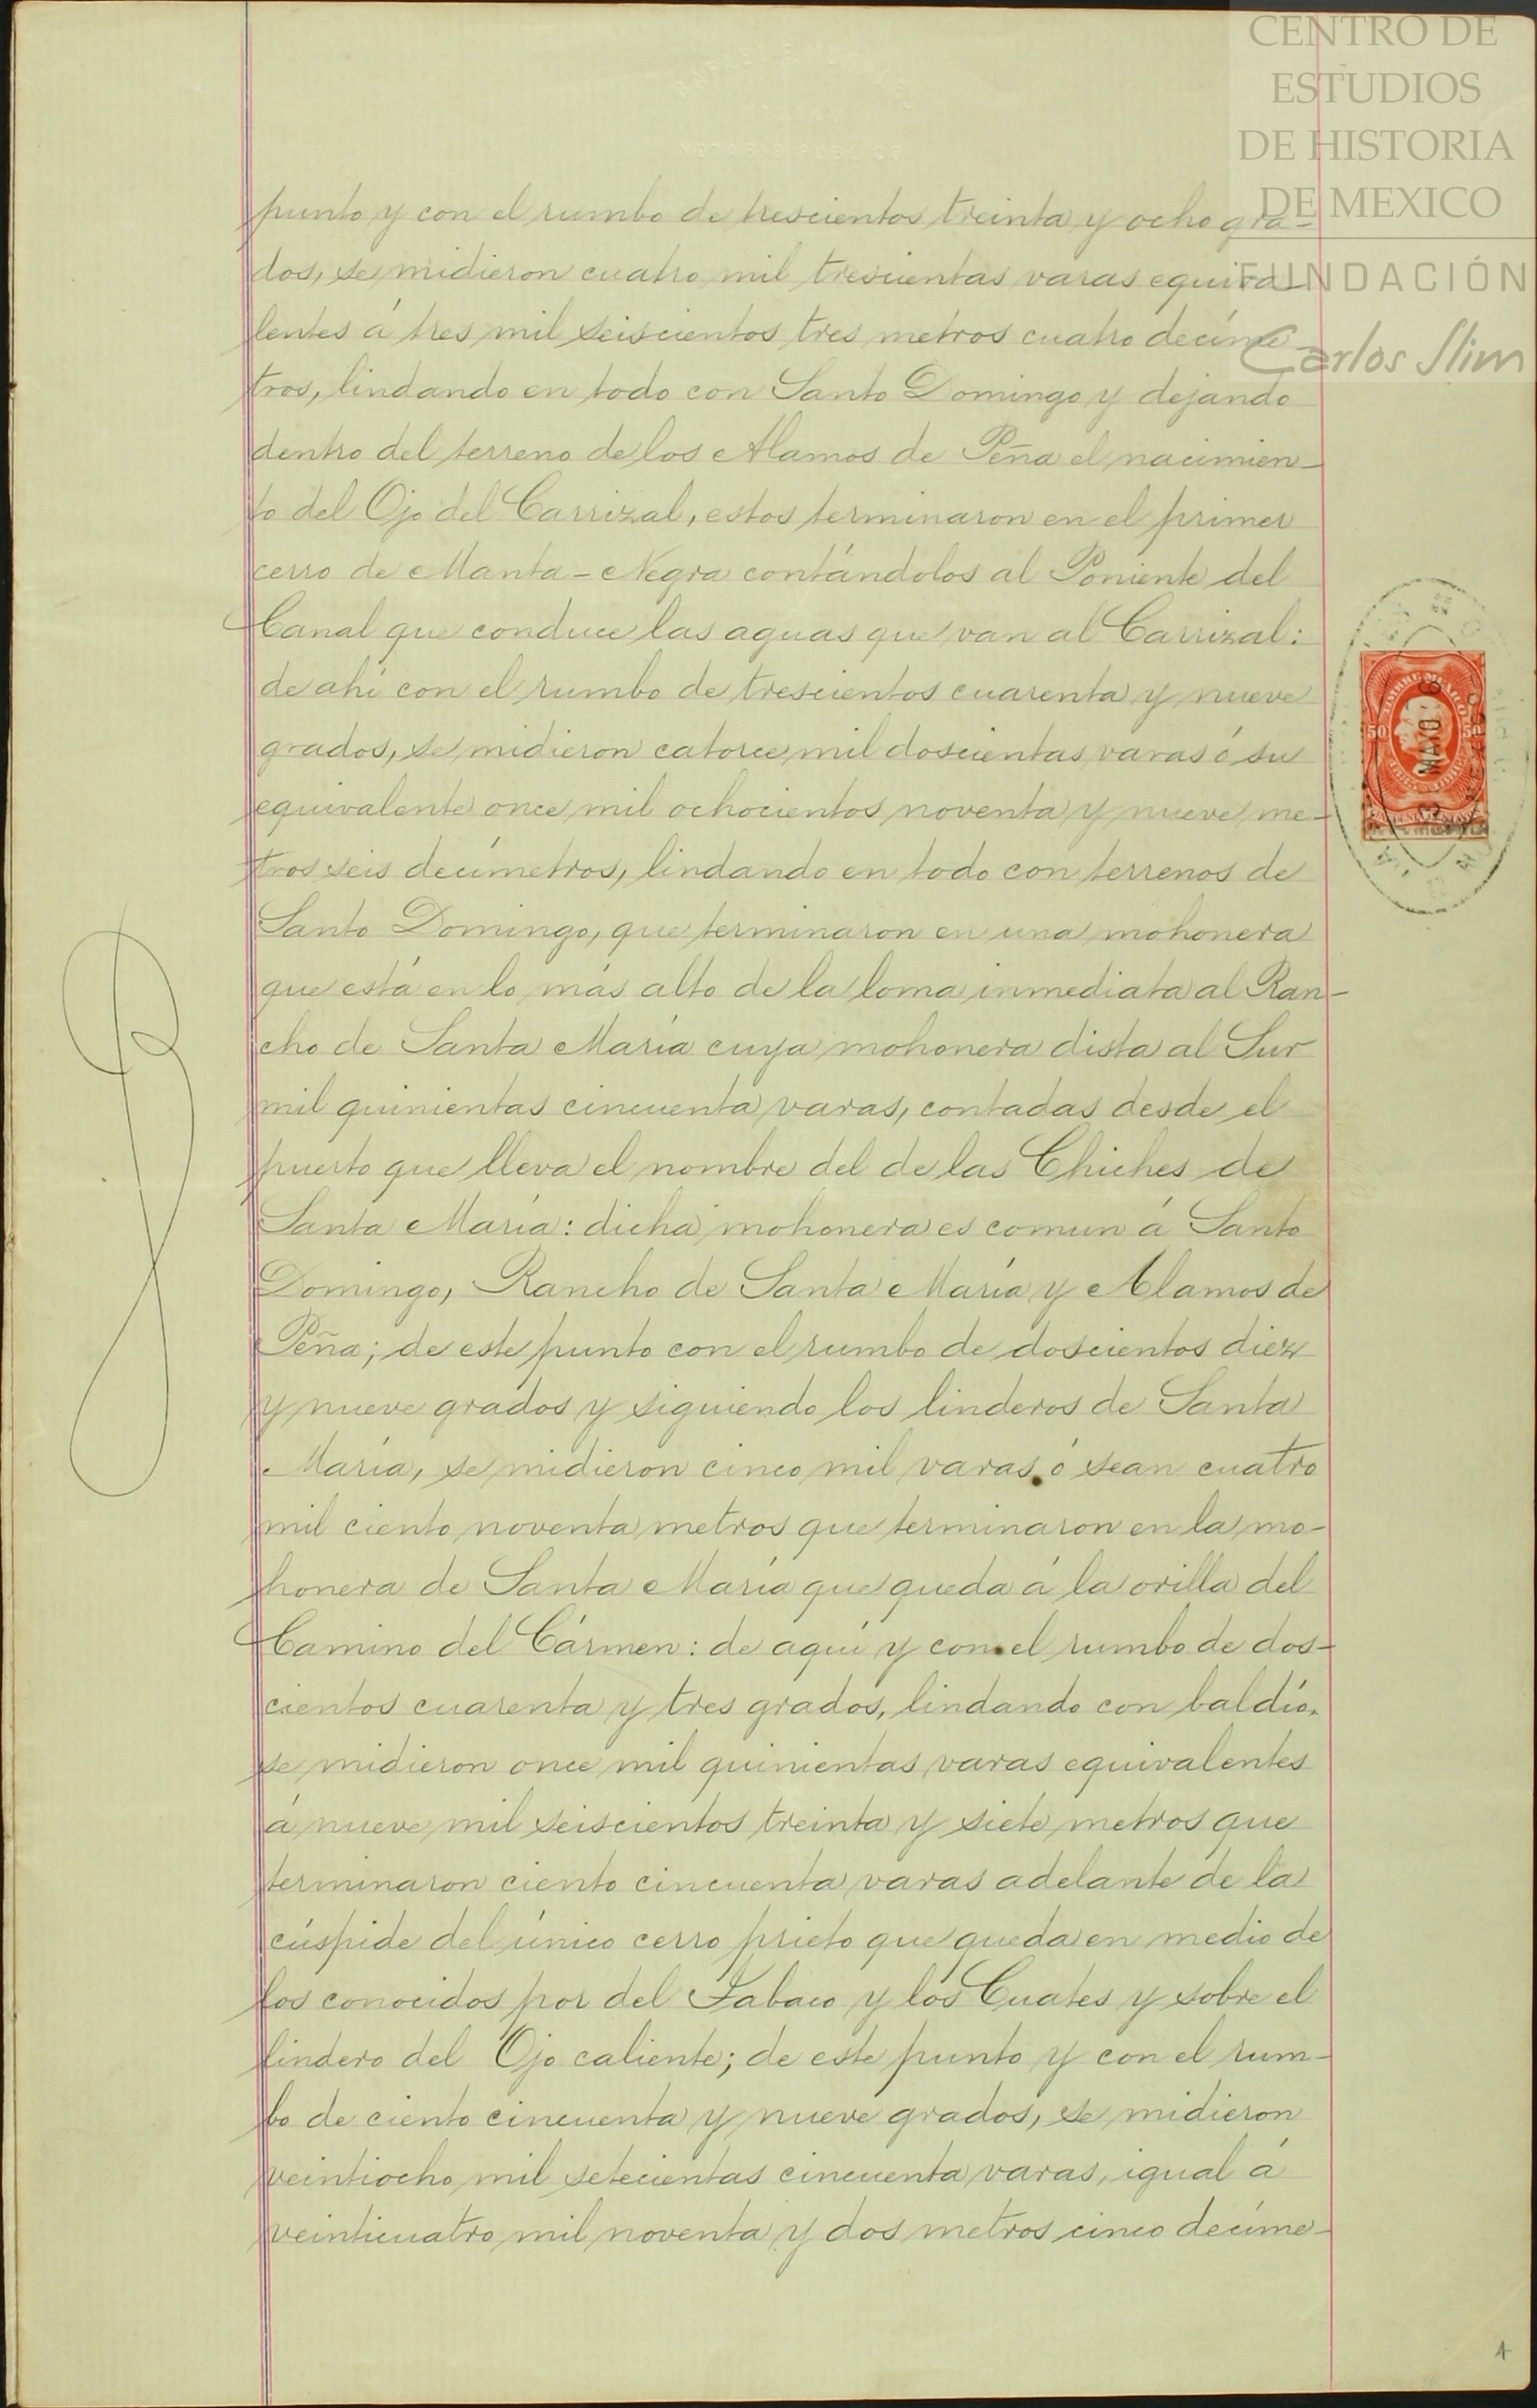 CENTRO DE
ESTUDIOS
DE HISTORIA
DE MEXICO
FUNDACIÓN
Carlos Slim
punto y con el rumbo de trescientos treinta y ocho gra-
dos, se midieron cuatro mil trescientas varas equiva-
lentes á tres mil seiscientos tres metros cuatro decíme-
tros, lindando en todo con Santo Domingo y dejando
dentro del terreno de los Alamos de Peña el nacimien-
to del Ojo del Carrizal, estos terminaron en el primer
cerro de Manta-Negra contándolos al Poniente del
Canal que conduce las aguas que van al Carrizal:
de ahí con el rumbo de trescientos cuarenta y nueve
grados, se midieron catorce mil doscientas varas ó su
equivalente once mil ochocientos noventa y nueve me-
tros seis decímetros, lindando en todo con terrenos de
Santo Domingo, que terminaron en una mohonera
que está en lo más alto de la loma inmediata al Ran-
cho de Santa María cuya mohonera dista al Sur
mil quinientas cincuenta varas, contadas desde el
puerto que lleva el nombre del de las Chiches de
Santa María: dicha mohonera es comun á Santo
Domingo, Rancho de Santa María y Alamos de
Peña; de este punto con el rumbo de doscientos diez
y nueve grados y siguiendo los linderos de Santa
María, se midieron cinco mil varas ó sean cuatro
mil ciento noventa metros que terminaron en la mo-
honera de Santa María que queda á la orilla del
Camino del Cármen: de aquí y con el rumbo de dos-
cientos cuarenta y tres grados, lindando con baldío,
se midieron once mil quinientas varas equivalentes
á nueve mil seiscientos treinta y siete metros que
terminaron ciento cincuenta varas adelante de la
cúspide del único cerro prieto que queda en medio de
los conocidos por del Tabaco y los Cuates y sobre el
lindero del Ojo caliente; de este punto y con el rum-
bo de ciento cincuenta y nueve grados, se midieron
veintiocho mil setecientas cincuenta varas, igual á
veinticuatro mil noventa y dos metros cinco decíme-
50
MAYO
4